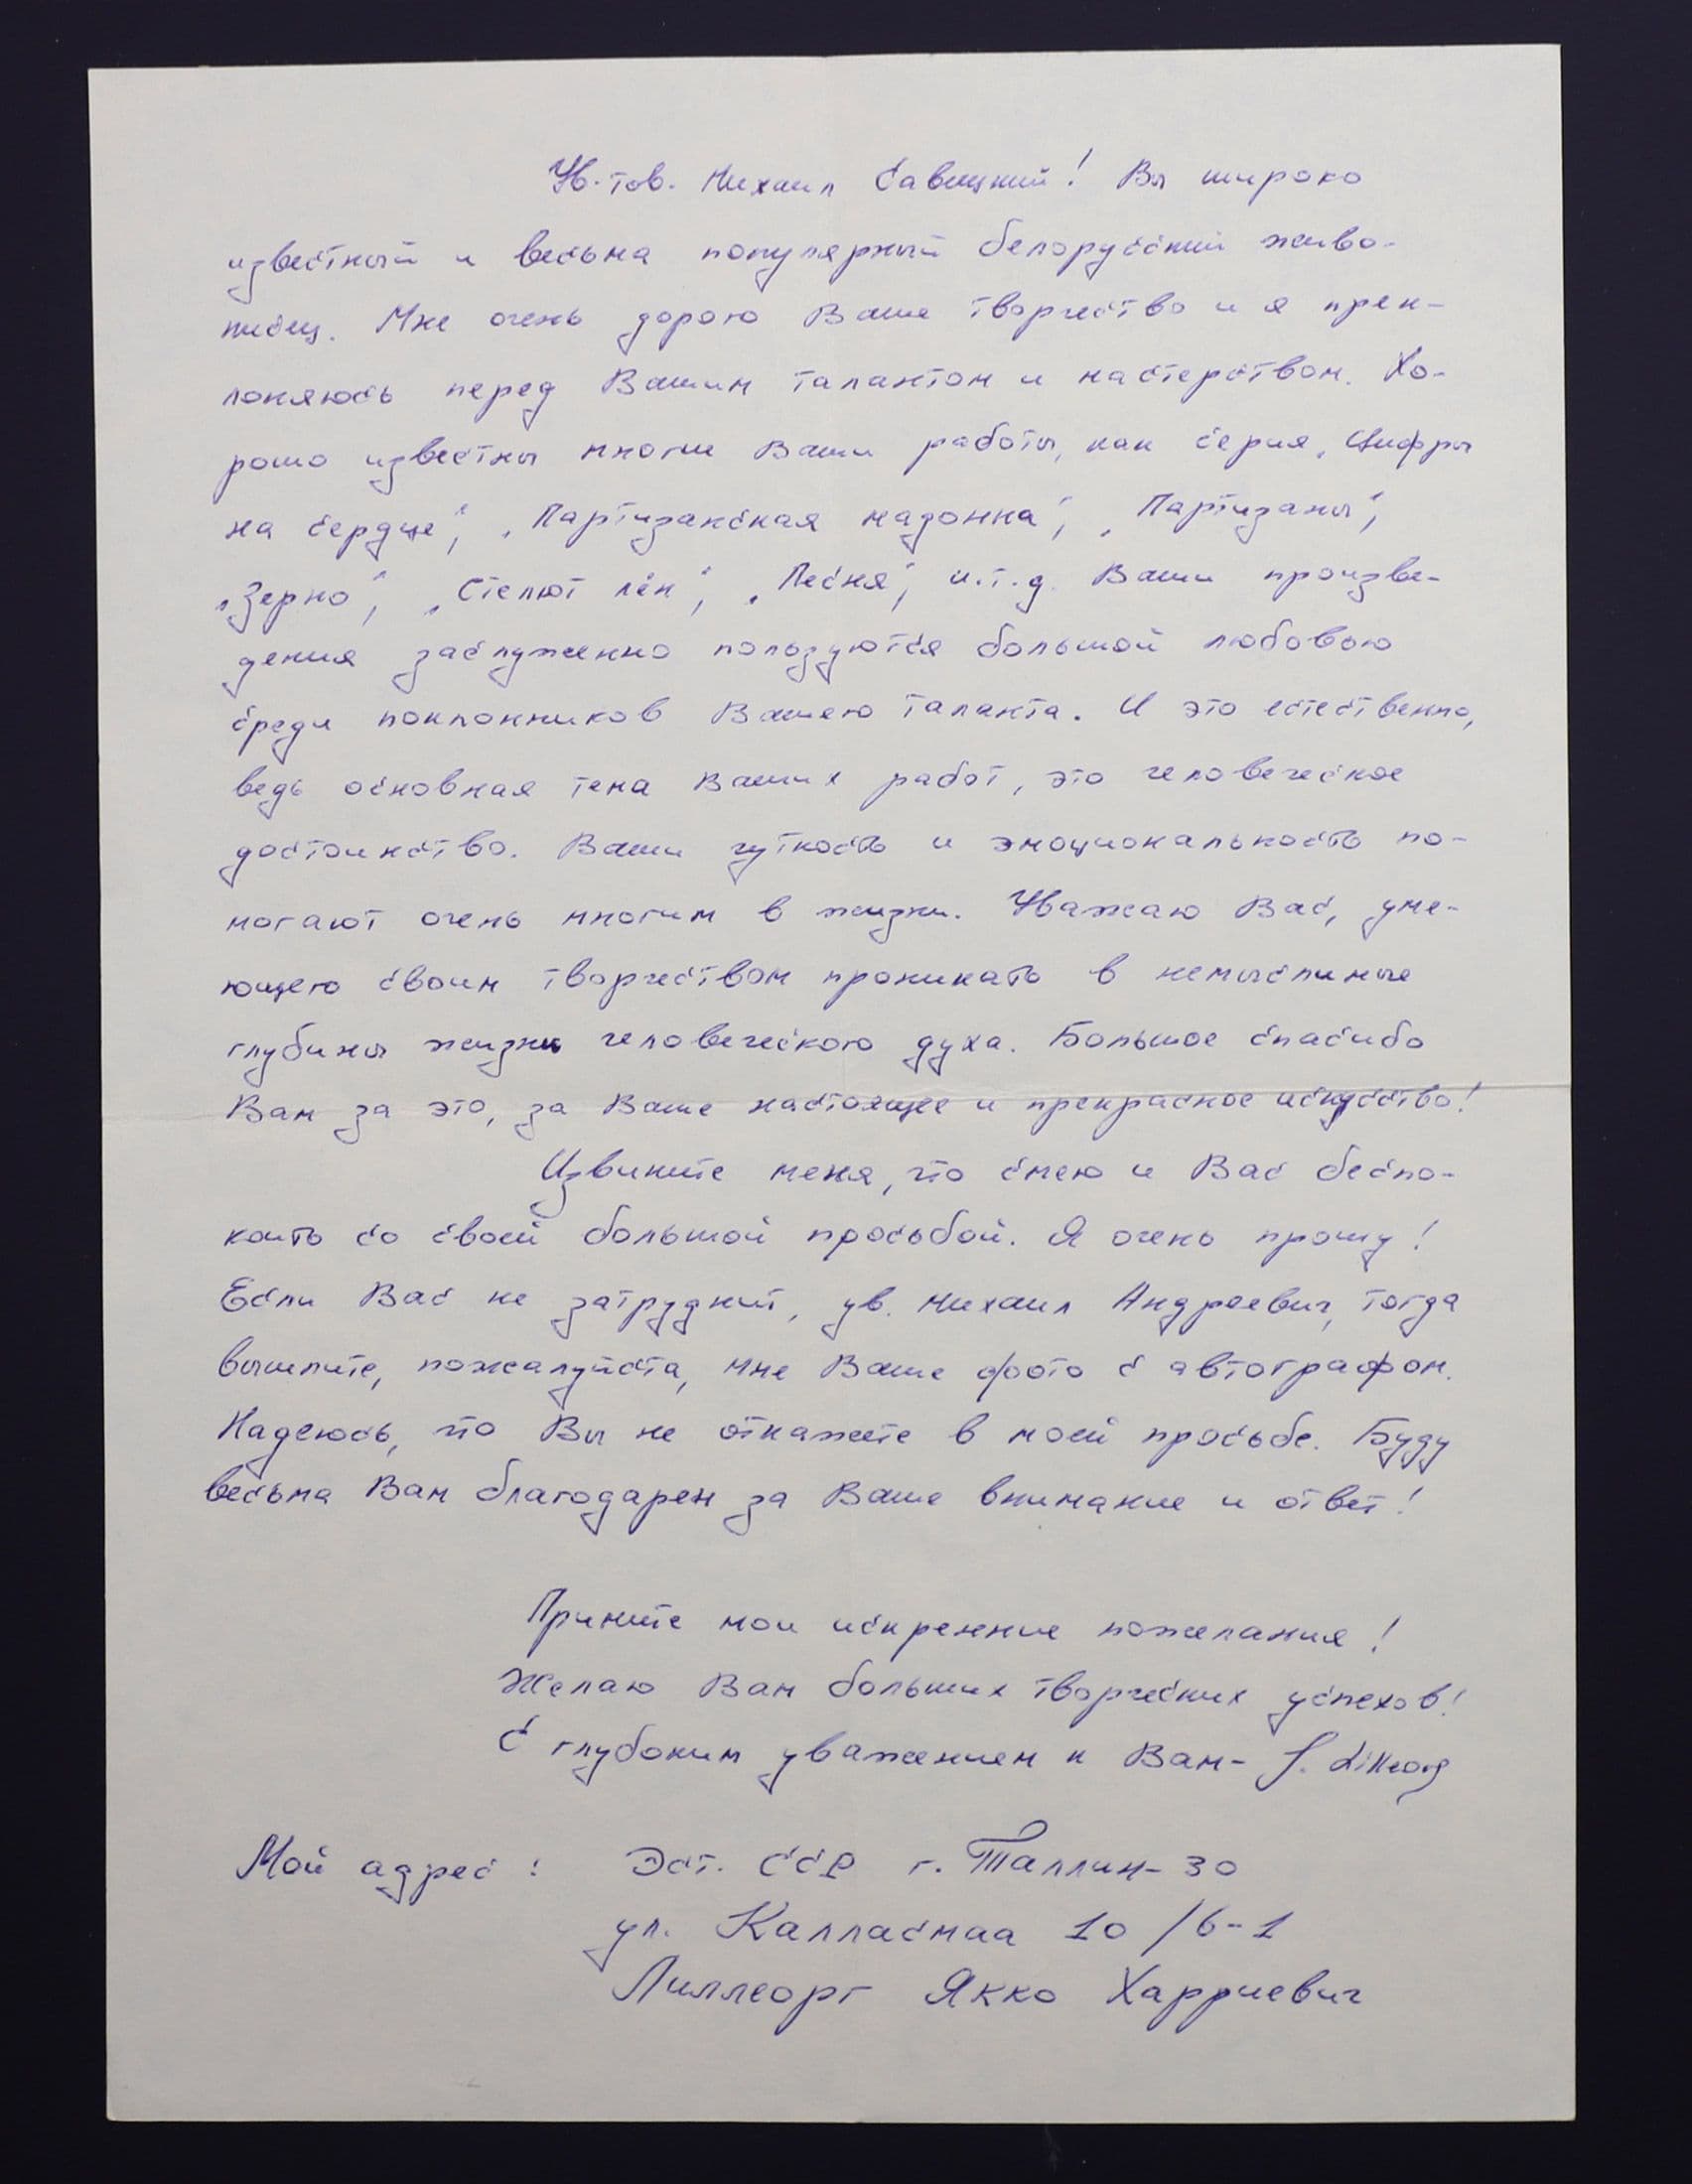 Ув. тов. Михаил Савицкий! Вы широко
известный и весьма популярный белорусский живо-
писец. Мне очень дорого Ваше творчество и я прек-
лоняюсь перед Вашим талантом и мастерством. Хо-
рошо известны многие Ваши работы, как серия „Цифры
на сердце", „Партизанская мадонна", „Партизаны",
„Зерно", „Стелют лён", „Песня", и.т.д. Ваши произве-
дения заслуженно пользуются большой любовью
среди поклонников Вашего таланта. И это естественно,
ведь основная тема Ваших работ, это человеческое
достоинство. Ваши чуткость и эмоциональность по-
могают очень многим в жизни. Уважаю Вас, уме-
ющего своим творчеством проникать в немыслимые
глубины жизни человеческого духа. Большое спасибо
Вам за это, за Ваше настоящее и прекрасное искусство!
Извините меня, что смею и Вас беспо-
коить со своей большой просьбой. Я очень прошу!
Если Вас не затруднит, ув. Михаил Андреевич, тогда
вышлите, пожалуйста, мне Ваше фото с автографом.
Надеюсь, что Вы не откажете в моей просьбе. Буду
весьма Вам благодарен за Ваше внимание и ответ!
Примите мои искренние пожелания!
Желаю Вам больших творческих успехов!
С глубоким уважением к Вам- J. Lilleorg
Мой адрес: Эст. ССР г. Таллин-30
ул. Калласмаа 10/6-1
Лиллеорг Якко Харриевич